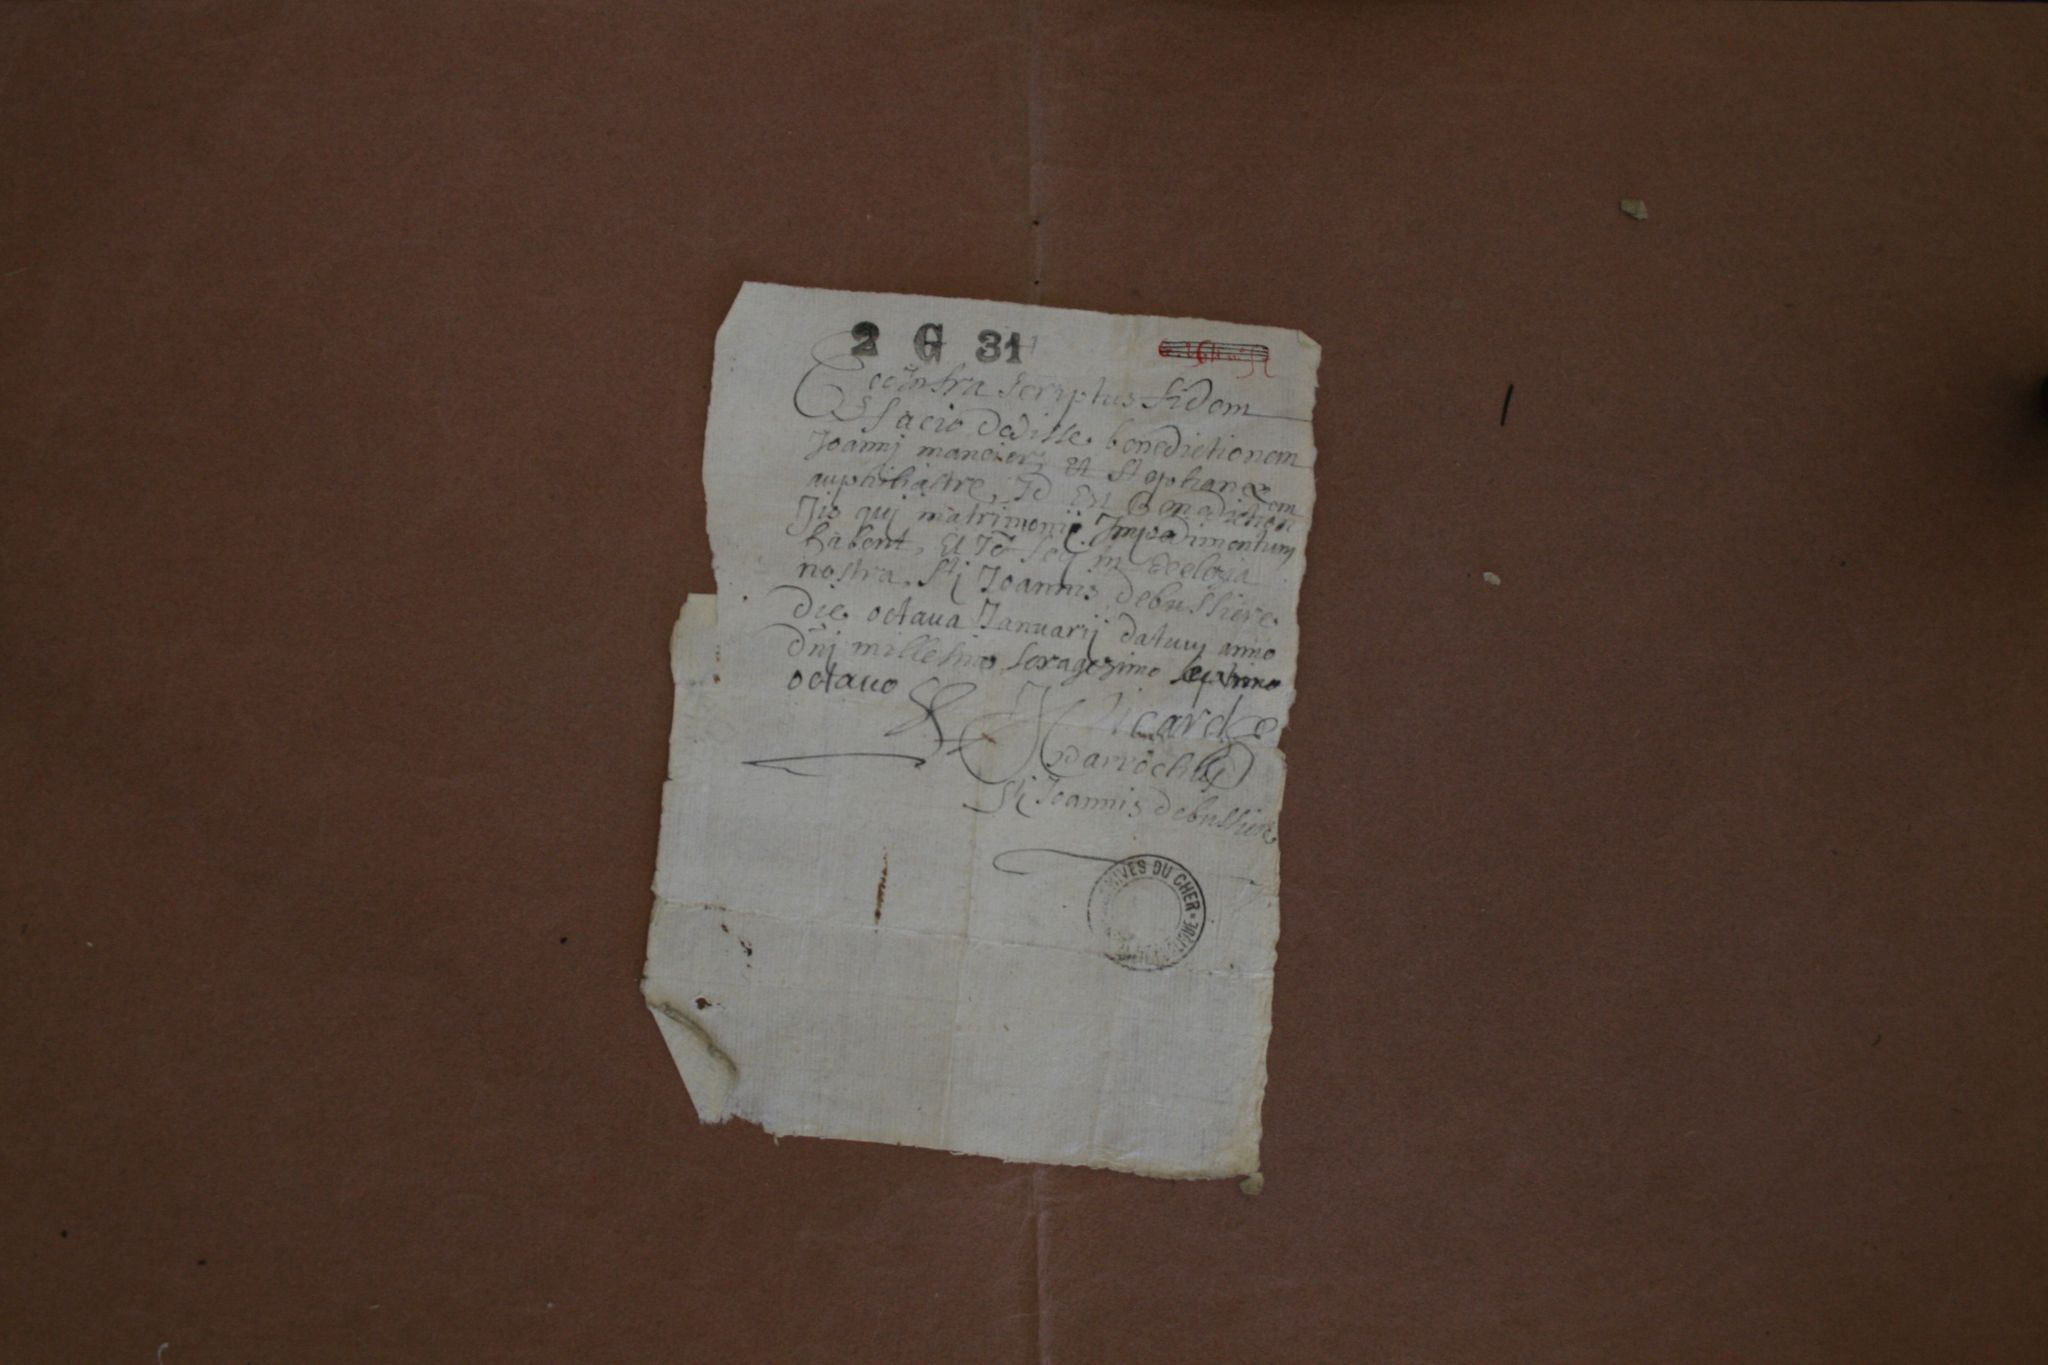 2 G 31
Ego infra scriptus fidem
facio dedisse benedictionem
Joannj mancier; et stephanæ
auphiliastre, Id Est Benediction em
Jis quj matrimonij Impedimentum
habent, et Id in Ecclezia
nostra Stj Joannis debussiere
die octaua Januarij datum anno
dnj millesimo sexagezimo septimo
octauo
Picard
parrochus
Stj Joannis debussiere
ARCHIVES DU CHER